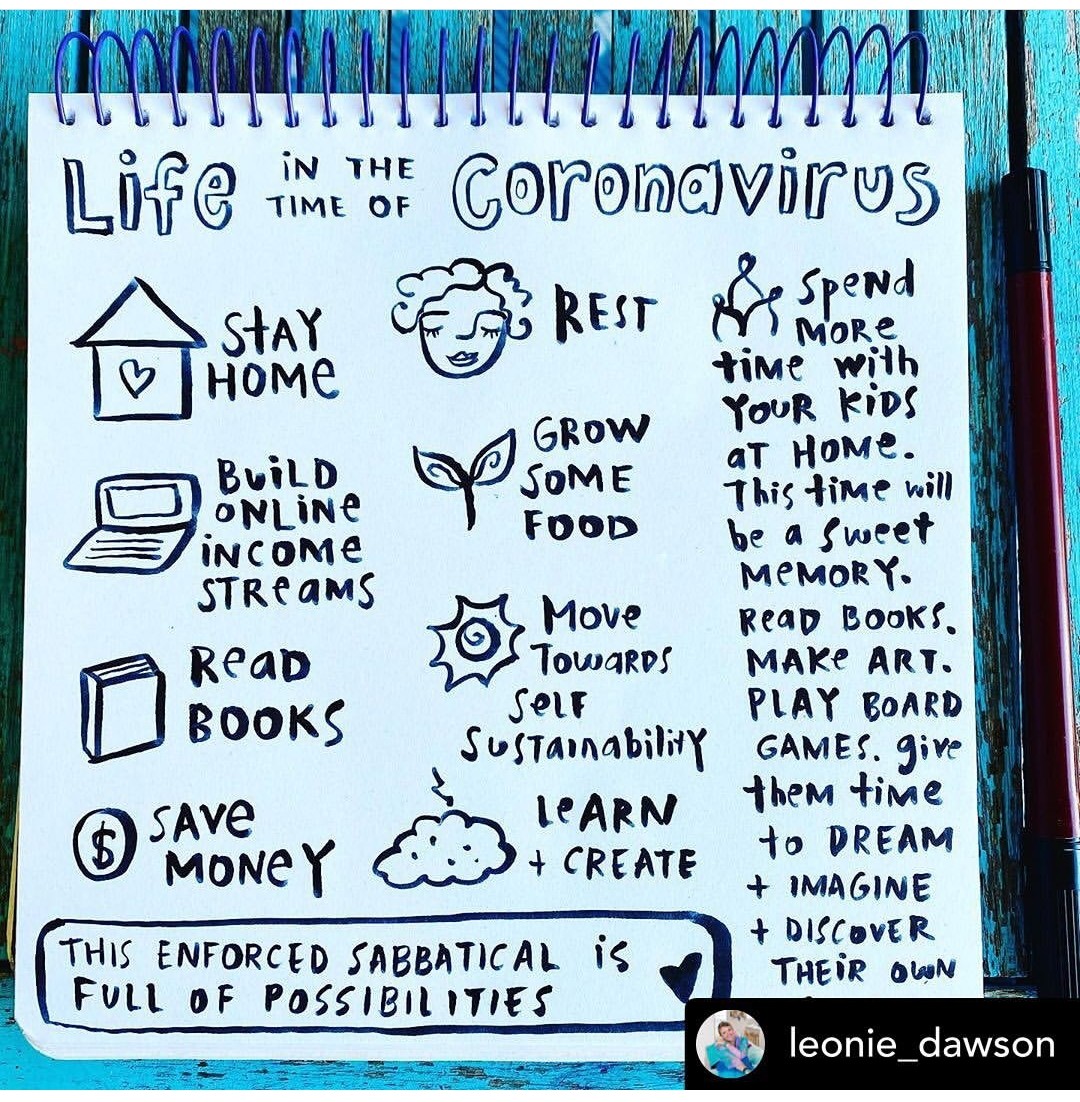 Life IN THE TIME OF Coronavirus
STAY
HOME
BUILD
ONLINE
INCOME
STREAMS
READ
BOOKS
$ SAVE
MONEY
REST
GROW
SOME
FOOD
MOVE
TOWARDS
SELF
SUSTAINABILITY
LEARN
+ CREATE
SPEND
MORE
time with
YOUR KIDS
AT HOME.
This time will
be a sweet
MEMORY.
READ BOOKS.
MAKE ART.
PLAY BOARD
GAMES. give
them time
to DREAM
+ IMAGINE
+ DISCOVER
THEIR OWN
THIS ENFORCED SABBATICAL is
FULL OF POSSIBILITIES
leonie_dawson